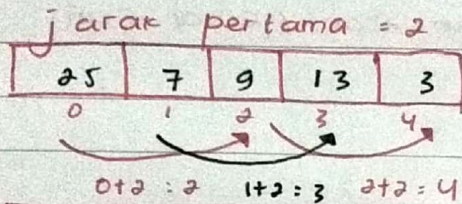 jarak pertama = 2
25 7 9 13 3
0 1 2 3 4
0+2 : 2 1+2 : 3 2+2 = 4